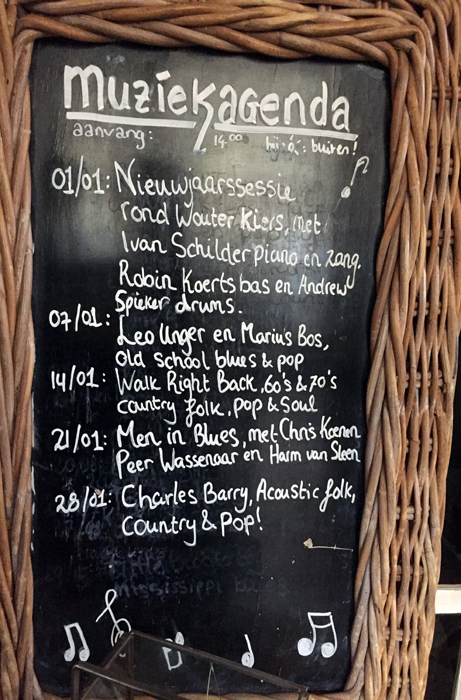 Muziekagenda
aanvang: 14.00 buiten!
01/01: Nieuwjaarssessie
rond Wouter Kiers, met
Ivan Schilder piano en zang.
Robin Koerts bas en Andrew
Spieker drums.
07/01:
Leo Unger en Marius Bos,
Old school blues & pop
14/01: Walk Right Back, 60's & 70's
country folk, pop & Soul
21/01: Men in Blues, met Chris Koenen
Peer Wassenaar en Harm van Sleen
28/01: Charles Barry, Acoustic folk,
Country & Pop!
Mississippi